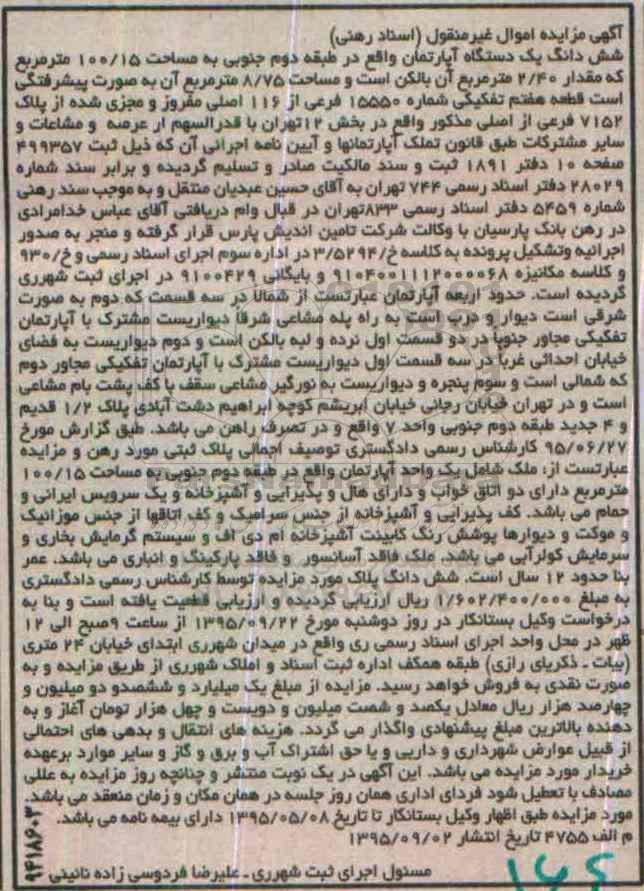 آگهی مزایده اموال غیرمنقول (اسناد رهنی)
شش دانگ یک دستگاه آپارتمان واقع در طبقه دوم جنوبی به مساحت ۱۰۰/۱۵ مترمربع
که مقدار ۲/۴۰ مترمربع آن بالکن است و مساحت ۸/۷۵ مترمربع آن به صورت پیشرفتگی
است قطعه هفتم تفکیکی شماره ۱۵۵۵۰ فرعی از ۱۱۶ اصلی مفروز و مجزی شده از پلاک
۷۱۵۲ فرعی از اصلی مذکور واقع در بخش ۱۲تهران با قدرالسهم از عرصه و مشاعات و
سایر مشترکات طبق قانون تملک آپارتمانها و آیین نامه اجرائی آن که ذیل ثبت ۴۹۹۳۵۷
صفحه ۱۰ دفتر ۱۸۹۱ ثبت و سند مالکیت صادر و تسلیم گردیده و برابر سند شماره
۲۸۰۲۹ دفتر اسناد رسمی ۷۴۴ تهران به آقای حسین عبدیان منتقل و به موجب سند رهنی
شماره ۵۴۵۹ دفتر اسناد رسمی ۸۳۳تهران در قبال وام دریافتی آقای عباس خدامرادی
در رهن بانک پارسیان با وکالت شرکت تامین اندیش پارس قرار گرفته و منجر به صدور
اجرائیه وتشکیل پرونده به کلاسه خ/۳/۵۲۹۴ در اداره سوم اجرای اسناد رسمی و خ/۹۳۰
و کلاسه مکانیزه ۹۱۰۴۰۰۱۱۱۲۰۰۰۰۶۸ و بایگانی ۹۱۰۰۴۲۹ در اجرای ثبت شهرری
گردیده است. حدود اربعه آپارتمان عبارتست از شمالا در سه قسمت که دوم به صورت
شرقی است دیوار و درب است به راه پله مشاعی شرقا دیواریست مشترک با آپارتمان
تفکیکی مجاور جنوبا در دو قسمت اول نرده و لبه بالکن است و دوم دیواریست به فضای
خیابان احداثی غربا در سه قسمت اول دیواریست مشترک با آپارتمان تفکیکی مجاور دوم
که شمالی است و سوم پنجره و دیواریست به نورگیر مشاعی سقف با کف پشت بام مشاعی
است و در تهران خیابان رجائی خیابان ابریشم کوچه ابراهیم دشت آبادی پلاک ۱/۲ قدیم
و ۴ جدید طبقه دوم جنوبی واحد ۷ واقع و در تصرف راهن می باشد. طبق گزارش مورخ
۹۵/۰۶/۲۷ کارشناس رسمی دادگستری توصیف اجمالی پلاک ثبتی مورد رهن و مزایده
عبارتست از: ملک شامل یک واحد آپارتمان واقع در طبقه دوم جنوبی به مساحت ۱۰۰/۱۵
مترمربع دارای دو اتاق خواب و دارای هال و پذیرایی و آشپزخانه و یک سرویس ایرانی و
حمام می باشد. کف پذیرایی و آشپزخانه از جنس سرامیک و کف اتاقها از جنس موزائیک
و موکت و دیوارها پوشش رنگ کابینت آشپزخانه ام دی اف و سیستم گرمایش بخاری و
سرمایش کولرآبی می باشد. ملک فاقد آسانسور و فاقد پارکینگ و انباری می باشد. عمر
بنا حدود ۱۲ سال است. شش دانگ پلاک مورد مزایده توسط کارشناس رسمی دادگستری
به مبلغ ۱/۶۰۲/۴۰۰/۰۰۰ ریال ارزیابی گردیده و ارزیابی قطعیت یافته است و بنا به
درخواست وکیل بستانکار در روز دوشنبه مورخ ۱۳۹۵/۰۹/۲۲ از ساعت ۹صبح الی ۱۲
ظهر در محل واحد اجرای اسناد رسمی ری واقع در میدان شهرری ابتدای خیابان ۲۴ متری
(بیات - ذکریای رازی) طبقه همکف اداره ثبت اسناد و املاک شهرری از طریق مزایده و به
صورت نقدی به فروش خواهد رسید. مزایده از مبلغ یک میلیارد و ششصدو دو میلیون و
چهارصد هزار ریال معادل یکصد و شصت میلیون و دویست و چهل هزار تومان آغاز و به
دهنده بالاترین مبلغ پیشنهادی واگذار می گردد. هزینه های انتقال و بدهی های احتمالی
از قبیل عوارض شهرداری و دارایی و یا حق اشتراک آب و برق و گاز و سایر موارد برعهده
خریدار مورد مزایده می باشد. این آگهی در یک نوبت منتشر و چنانچه روز مزایده به عللی
مصادف با تعطیل شود فردای اداری همان روز جلسه در همان مکان و زمان منعقد می باشد.
مورد مزایده طبق اظهار وکیل بستانکار تا تاریخ ۱۳۹۵/۰۵/۰۸ دارای بیمه نامه می باشد.
م الف ۴۷۵۵ تاریخ انتشار ۱۳۹۵/۰۹/۰۲
مسئول اجرای ثبت شهرری - علیرضا فردوسی زاده نائینی
۹۴۱۸۶۰۳